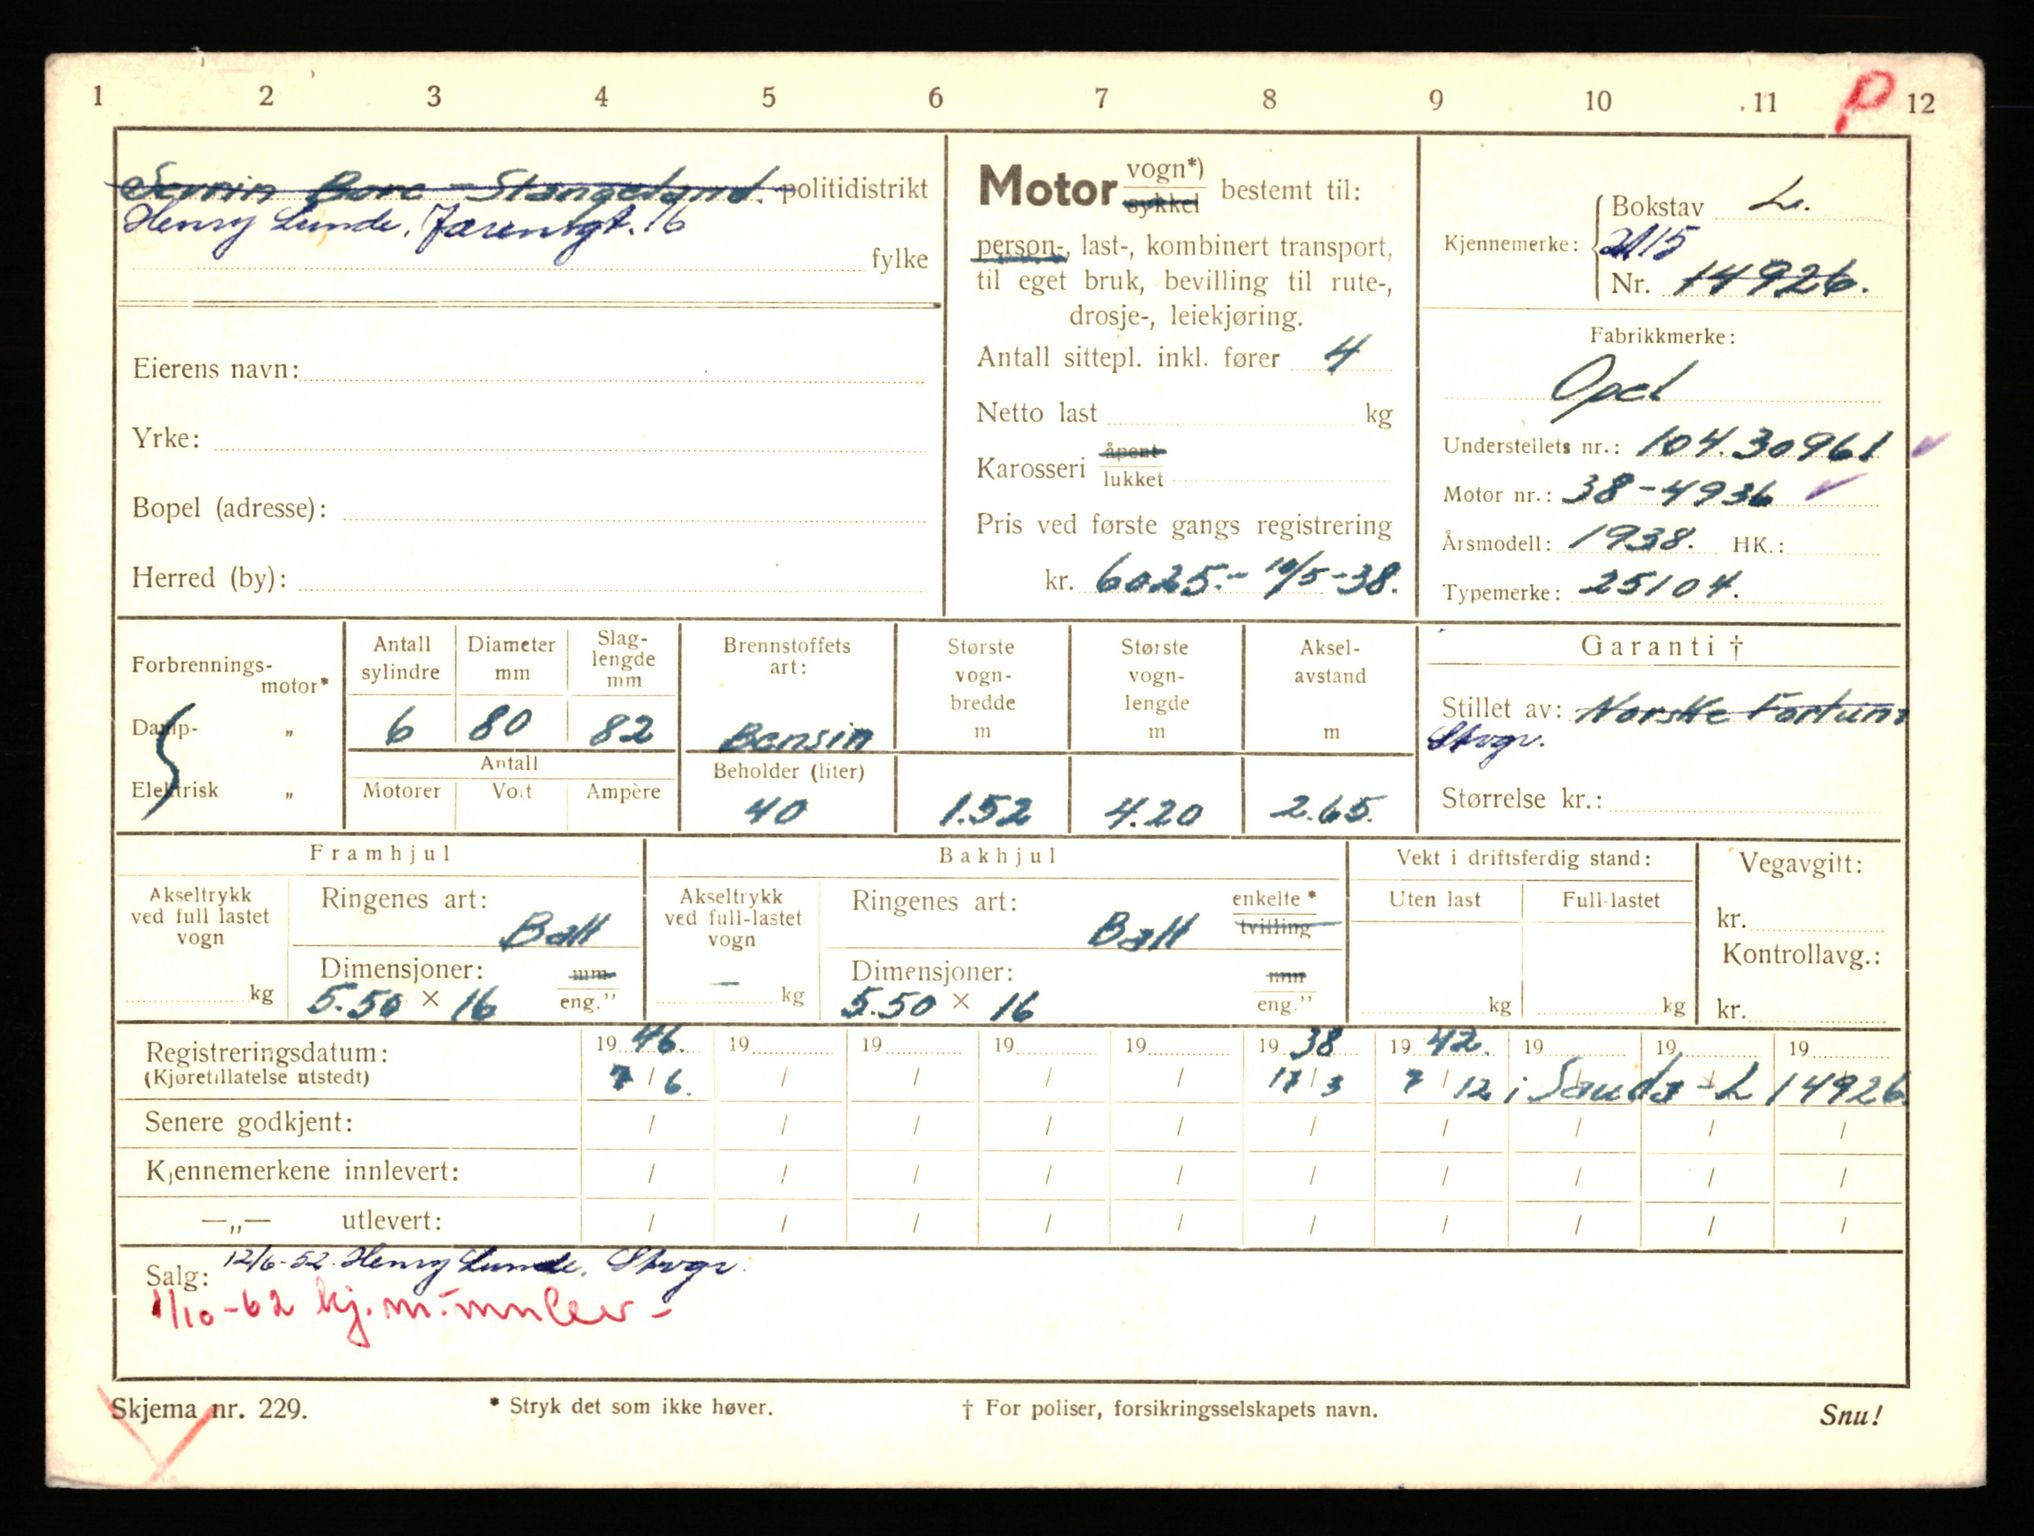 1 2 3 4 5 6 7 8 9 10 11 P 12
Bore - Stangeland. politidistrikt
Henry Lunde, Jærensgt. 16
fylke
Eierens navn:
Yrke:
Bopel (adresse):
Herred (by):
Motor vogn*) sykkel bestemt til:
person-, last-, kombinert transport,
til eget bruk, bevilling til rute-,
drosje-, leiekjøring.
Antall sittepl. inkl. fører 4
Netto last kg
Karosseri åpent lukket
Pris ved første gangs registrering
kr. 6025.- 10/5-38.
Kjennemerke: Bokstav L.
Nr. 14926.
Fabrikkmerke:
Opel
Understellets nr.: 104.30961
Motor nr.: 38-4936
Årsmodell: 1938. HK.:
Typemerke: 25104.
Forbrennings-
motor*
Damp- „
Elektrisk „
Antall sylindre
6
Diameter mm
80
Slag-
lengde
mm
82
Antall
Motorer Volt Ampère
Brennstoffets
art:
Bensin
Beholder (liter)
40
Største
vogn-
bredde
m
1.52
Største
vogn-
lengde
m
4.20
Aksel-
avstand
m
2.65.
Garanti †
Stillet av: Norske Fortuna
Stvgr.
Størrelse kr.:
Framhjul
Akseltrykk
ved full lastet
vogn
kg
Ringenes art:
Ball
Dimensjoner: mm
5.50 × 16 eng."
Bakhjul
Akseltrykk
ved full-lastet
vogn
— kg
Ringenes art: enkelte*
Ball tvilling
Dimensjoner: mm
5.50 × 16 eng."
Vekt i driftsferdig stand:
Uten last Full-lastet
kg kg
Vegavgift:
kr.
Kontrollavg.:
kr.
Registreringsdatum: 19 46. 19 19 19 19 19 38 19 42. 19 19 19
(Kjøretillatelse utstedt) 7 / 6. / / / / 17 / 3 7 / 12 i Sauda - L 14926.
Senere godkjent: / / / / / / / / / /
Kjennemerkene innlevert: / / / / / / / / / /
—„— utlevert: / / / / / / / / / /
Salg: 12/6-52. Henry Lunde, Stvgr.
1/10-62 kj.m. innlev -
Skjema nr. 229.
* Stryk det som ikke høver.
† For poliser, forsikringsselskapets navn.
Snu!